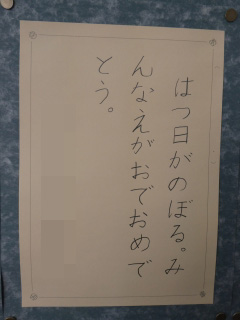 はつ日がのぼる。み
んなえがおでおめで
とう。